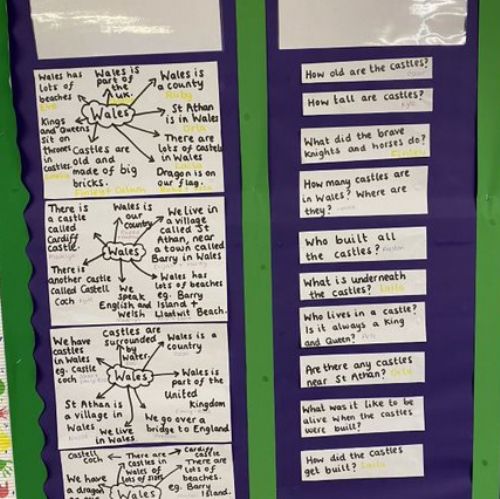 Wales has
lots of
beaches
Wales is
part of
the
UK.
Wales is
a county
Ruby
Wales
Kings
and Queens
sit on
thrones
in
castles.
St Athan
is in Wales
Orla
There are
lots of Castels
in Wales
Castles are
old and
made of big
bricks.
Finley + Callum
Dragon is on
our flag.
There is
a castle
called
Cardiff
castle.
Wales is
our
country
We live in
a village
called St
Athan, near
a town called
Barry in Wales
Wales
There is
another castle
called Castell
Coch
We
speak
English and
Welsh
Wales has
lots of beaches
eg. Barry
Island +
Llantwit Beach.
We have
castles
in Wales
eg. Castle
coch
Castles are
surrounded
by
water.
Wales is a
country
Wales
Wales is
part of the
United
Kingdom
St Athan is
a village in
Wales
We live
in Wales
We go over a
bridge to England
Castell
coch
There are
castles in
Wales of
lots of sizes
Cardiff
castle
There are
lots of
beaches.
eg. Barry
Island.
We have
a dragon
Wales
How old are the castles?
How tall are castles?
What did the brave
knights and horses do?
Finley
How many castles are
in Wales? Where are
they?
Who built all
the castles?
What is underneath
the castles? Laila
Who lives in a castle?
Is it always a King
and Queen?
Are there any castles
near St Athan? Orla
What was it like to be
alive when the castles
were built?
How did the castles
get built? Laila